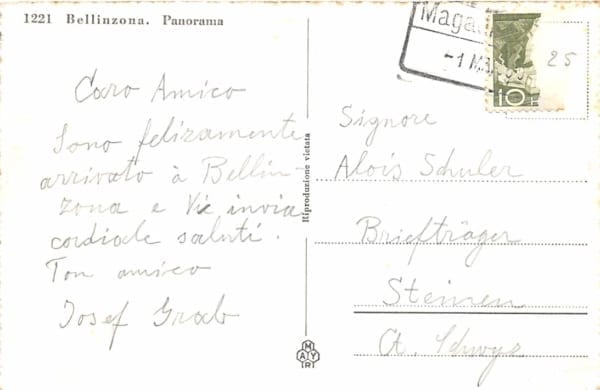 1221 Bellinzona. Panorama
Caro Amico
Sono felizamente
arrivato à Bellin-
zona e Vie invia
cordiale saluti.
Ton amico
Josef Grab
Riproduzione vietata
MAYR
Maga
-1 M
10
25
Signore
Alois Schuler
Briefträger
Steinen
Ct. Schwyz